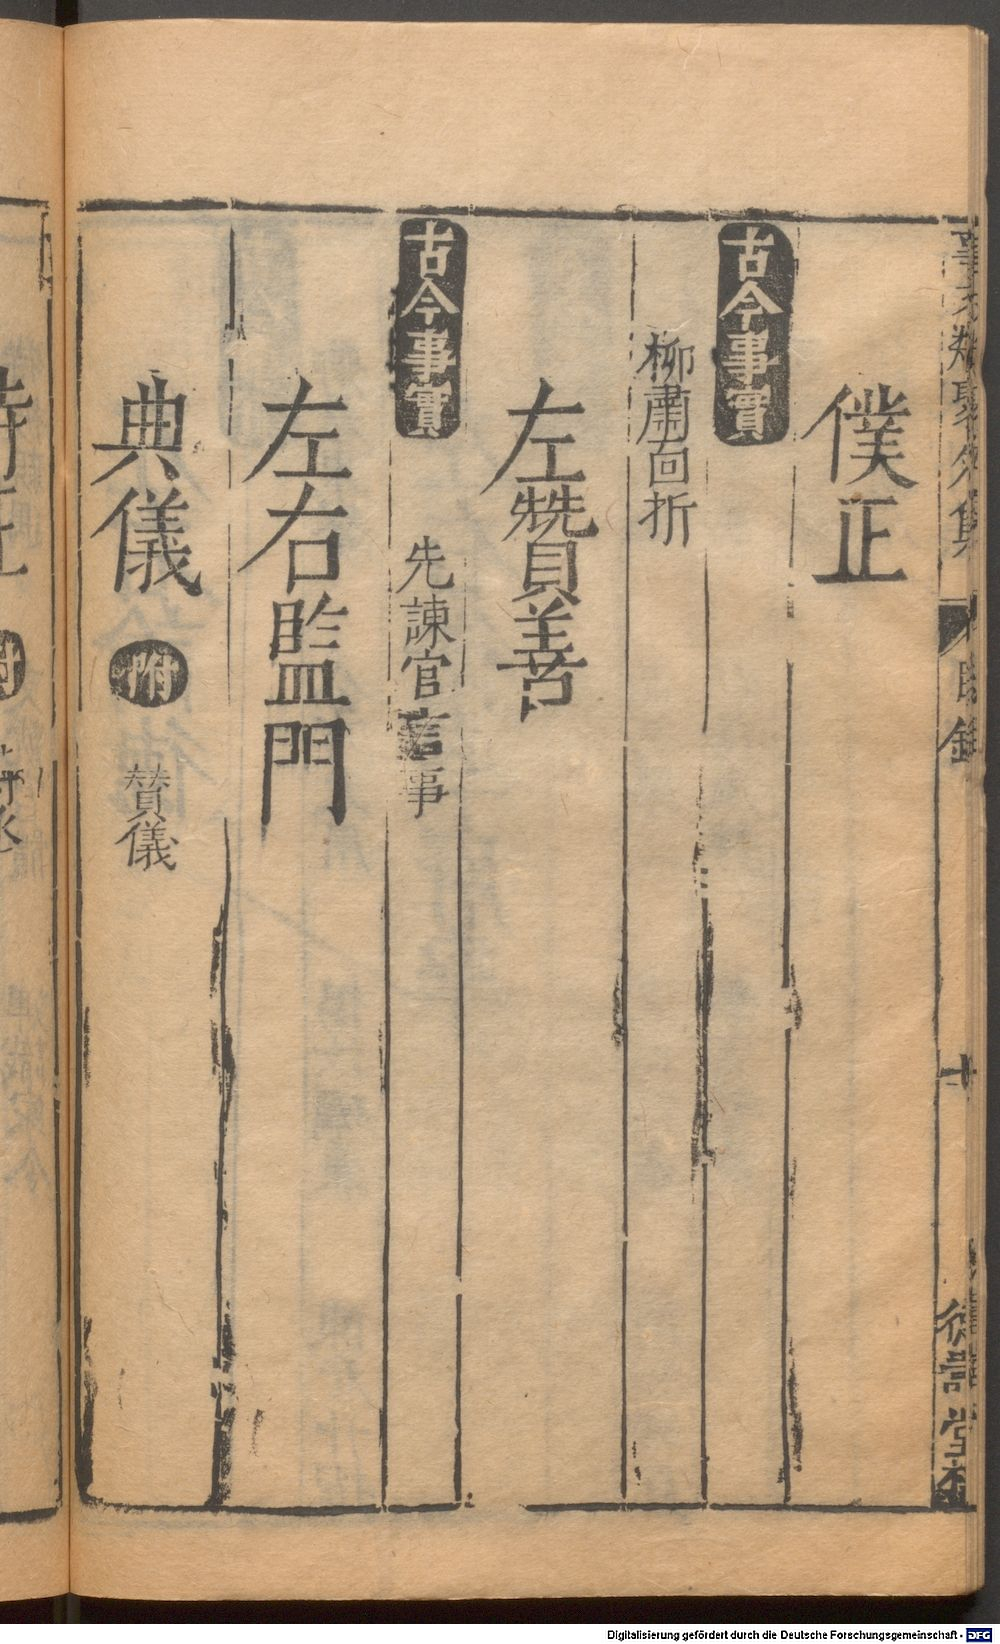 僕正
古今事實
柳肅面折
左贊善
古今事實
先諫官言事
左右監門
典儀 附 贊儀
Digitalisierung gefördert durch die Deutsche Forschungsgemeinschaft - DFG